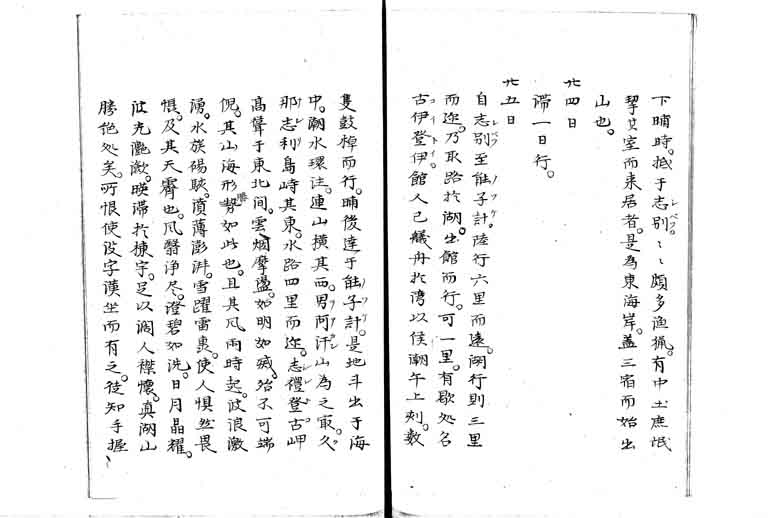 下晡時。抵于志別。〻〻頗多漁猟。有中土庶氓
挈其室而来居者。是為東海岸。蓋三宿而始出
山也。
廿四日
滞一日行。
廿五日
自志別至能子計。陸行六里而遠。湖行則三里
而近。乃取路於湖。出館而行。可一里。有歇処名
古伊登伊。館人已艤舟於湾以俟潮午上刻。数
隻鼓棹而行。晡後達于能子計。是地斗出于海
中。潮水環注。連山横其西。男阿汗山為之最。久
那志利島峙其東。水路四里而近。志禮登古岬
高聳于東北間。雲烟摩盪。如明如滅。殆不可端
倪。其山海形勢如此也。且其風雨時起。波浪激
湧。水族碭駭。濆薄澎湃。雪躍雷轟。使人惧然畏
惧。及其天霽也。風翳浄尽。澄碧如洗。日月晶耀。
波光灔瀲。暎滞於棟宇。足以濶人襟懐。真湖山
勝絶処矣。所恨使没字漢坐而有之。徒知手握